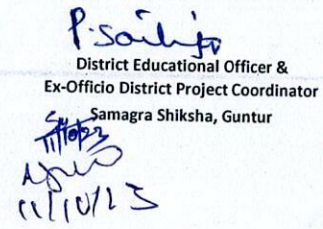 District Educational Officer &
Ex-Officio District Project Coordinator
Samagra Shiksha, Guntur
11/10/23
11/10/23